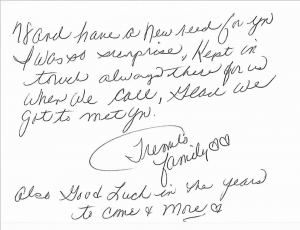 and have a New need for yn
I was so surprise, Kept in
touch always there for us
when we call, Glad we
got to met yn.
family ♡♡
Also Good Luck in the years
to come & More ♡